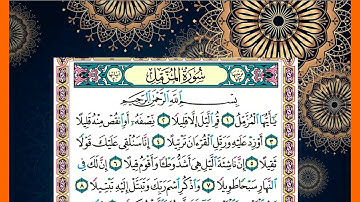 سُورَةُ المُزَّمِّلِ
بِسْمِ ٱللَّهِ ٱلرَّحْمَٰنِ ٱلرَّحِيمِ
يَٰٓأَيُّهَا ٱلْمُزَّمِّلُ ١ قُمِ ٱلَّيْلَ إِلَّا قَلِيلًا ٢ نِّصْفَهُۥٓ أَوِ ٱنقُصْ مِنْهُ قَلِيلًا
٣ أَوْ زِدْ عَلَيْهِ وَرَتِّلِ ٱلْقُرْءَانَ تَرْتِيلًا ٤ إِنَّا سَنُلْقِى عَلَيْكَ قَوْلًا
ثَقِيلًا ٥ إِنَّ نَاشِئَةَ ٱلَّيْلِ هِىَ أَشَدُّ وَطْـًٔا وَأَقْوَمُ قِيلًا ٦ إِنَّ لَكَ فِى
ٱلنَّهَارِ سَبْحًا طَوِيلًا ٧ وَٱذْكُرِ ٱسْمَ رَبِّكَ وَتَبَتَّلْ إِلَيْهِ تَبْتِيلًا ٨